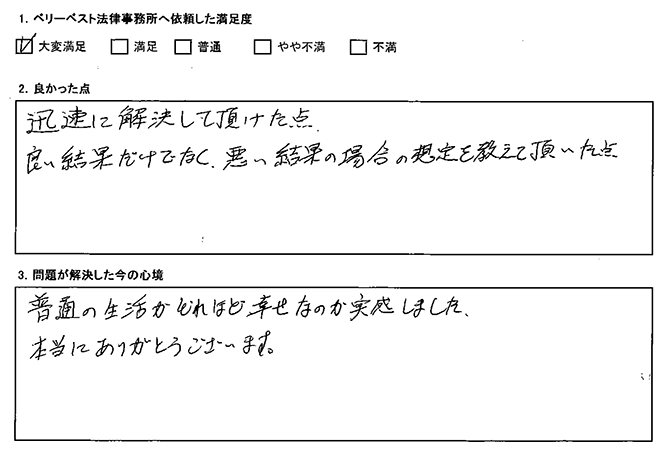 1. ベリーベスト法律事務所へ依頼した満足度
☑ 大変満足 □ 満足 □ 普通 □ やや不満 □ 不満
2. 良かった点
迅速に解決して頂けた点.
良い結果だけでなく、悪い結果の場合の想定を教えて頂いた点
3. 問題が解決した今の心境
普通の生活がどれほど幸せなのか実感しました、
本当にありがとうございます。